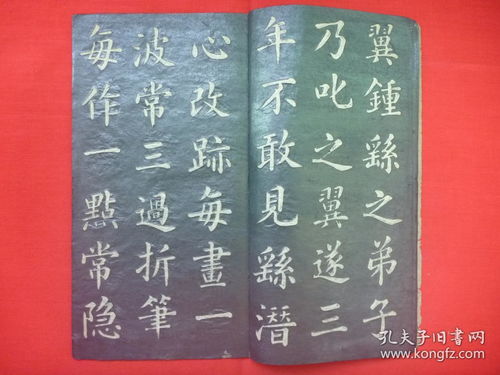 翼鍾繇之弟子
乃叱之翼遂三
年不敢見繇潛
心改跡每畫一
波常三過折筆
每作一點常隐
孔夫子旧书网
www.kongfz.com